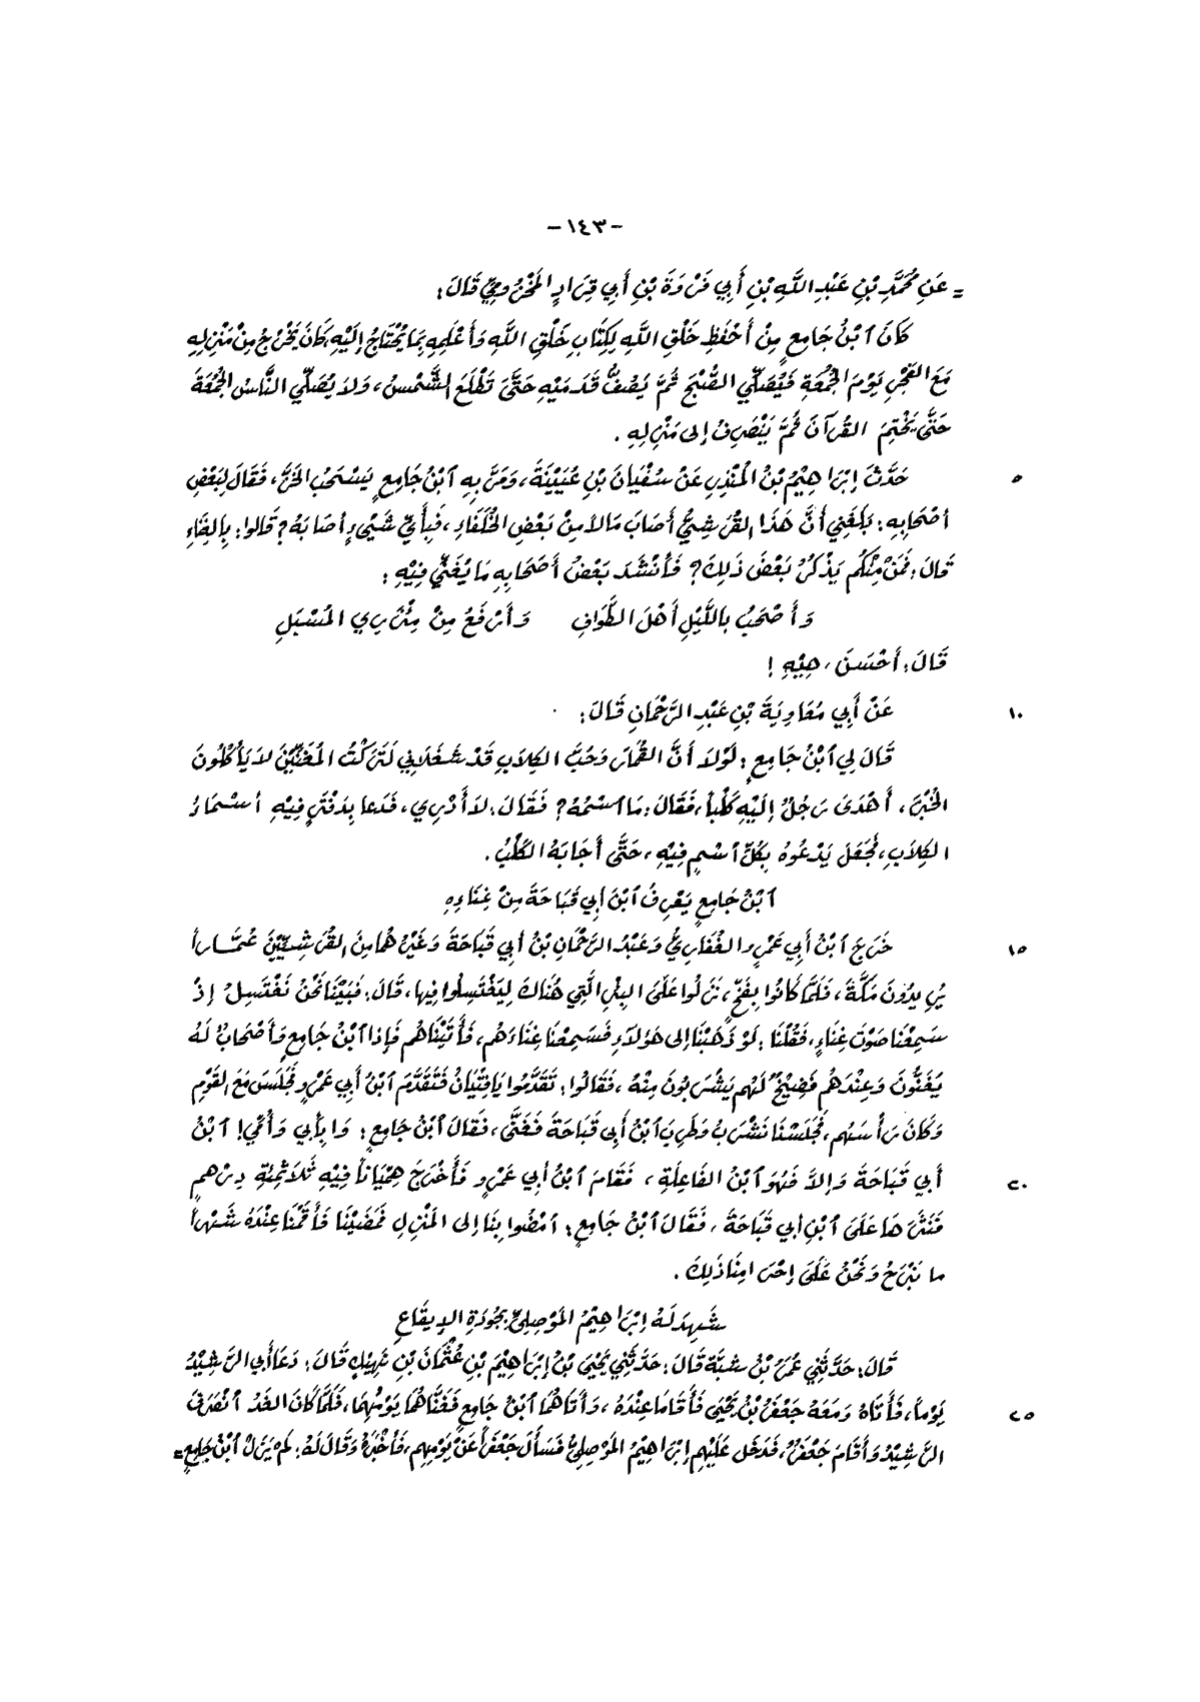 - ١٤٣ -
= عَنِ مُحَمَّدِ بْنِ عَبْدِ اللَّهِ بْنِ أَبِي فَرْوَةَ بْنِ أَبِي قِرَادٍ المَخْزُومِيِّ قَالَ:
كَانَ ٱبْنُ جَامِعٍ مِنْ أَحْفَظِ خَلْقِ اللَّهِ لِكِتَابِ خَلْقِ اللَّهِ وَأَعْلَمِهِ بِمَا يُحْتَاجُ إِلَيْهِ، كَانَ يَخْرُجُ مِنْ مَنْزِلِهِ
مَعَ الفَجْرِ يَوْمَ الجُمُعَةِ فَيُصَلِّي الصُّبْحَ ثُمَّ يَصُفُّ قَدَمَيْهِ حَتَّى تَطْلَعَ الشَّمْسُ، وَلاَ يُصَلِّي النَّاسُ الجُمُعَةَ
حَتَّى يَخْتِمَ القُرْآنَ ثُمَّ يَنْصَرِفُ إلى مَنْزِلِهِ .
٥ حَدَّثَ إِبْرَاهِيْمُ بْنُ المُنْذِرِ عَنْ سُفْيَانَ بْنِ عُيَيْنَةَ، وَمَرَّ بِهِ ٱبْنُ جَامِعٍ يَسْحَبُ الخَزَّ، فَقَالَ لِبَعْضِ
أَصْحَابِهِ: بَلَغَنِي أَنَّ هَذَا القُرَشِيَّ أَصَابَ مَالاً مِنْ بَعْضِ الخُلَفَاءِ، فَبِأَيِّ شَيْءٍ أَصَابَهُ؟ قَالوا: بِالغِنَاءِ
قَالَ: فَمَنْ مِنْكُم يَذْكُرُ بَعْضَ ذَلِكَ؟ فَأَنْشَدَ بَعْضُ أَصْحَابِهِ مَا يُغَنِّي فِيْهِ:
وَأَصْحَبُ بِاللَّيْلِ أَهْلَ الطَّوَافِ وَأَرْفَعُ مِنْ مِئْزَرِي المُسْبَلِ
قَالَ: أَحْسَنَ، هِيْهِ !
١٠ عَنْ أَبِي مُعَاوِيَةَ بْنِ عَبْدِ الرَّحْمَانِ قَالَ:
قَالَ لِي ٱبْنُ جَامِعٍ: لَوْلاَ أَنَّ القُمَارَ وَحُبَّ الكِلاَبِ قَدْ شَغَلاَنِي لَتَرَكْتُ المُغَنِّيْنَ لاَ يَأْكُلُونَ
الخُبْزَ، أَهْدَى رَجُلٌ إِلَيْهِ كَلْباً، فَقَالَ: مَا ٱسْمُهُ؟ فَقَالَ: لاَ أَدْرِي، فَدَعا بِدَفْتَرٍ فِيْهِ أسْمَاءُ
الكِلاَبِ، فَجَعَلَ يَدْعُوهُ بِكُلِّ ٱسْمٍ فِيْهِ، حَتَّى أَجَابَهُ الكَلْبُ .
ٱبْنُ جَامِعٍ يَعْرِفُ ٱبْنَ أَبِي قَبَاحَةَ مِنْ غِنَاءِهِ
١٥ خَرَجَ ٱبْنُ أَبِي عَمْرٍو الغُفَارِيُّ وَعَبْدُ الرَّحْمَانِ بْنُ أبي قَبَاحَةَ وَغَيْرُهُمَا مِنَ القُرَشِيِّيْنَ عُمَّاراً
يُرِيدُونَ مَكَّةَ، فَلَمَّا كَانُوا بِفَخٍّ، نَزَلُوا عَلَى البِئْرِ الَّتِي هُنَاكَ لِيَغْتَسِلُوا فِيها، قَالَ: فَبَيْنَا نَحْنُ نَغْتَسِلُ إذْ
سَمِعْنَا صَوْتَ غِنَاءٍ، فَقُلْنَا: لَوْ ذَهَبْنَا إلى هَؤُلاَءِ فَسَمِعْنَا غِنَاءَهُم، فَأَتَيْنَاهُم فَإِذا ٱبْنُ جَامِعٍ وَأَصْحَابٌ لَهُ
يُغَنُّونَ وَعِنْدَهُم فَضِيْخٌ لَهُم يَشْرَبُونَ مِنْهُ، فَقَالُوا: تَقَدَّمُوا يَا فِتْيَانُ فَتَقَدَّمَ ٱبْنُ أَبِي عَمْرٍو فَجَلَسَ مَعَ القَوْمِ
وَكَانَ رَأْسَهُم، فَجَلَسْنَا نَشْرَبُ وَطَرِبَ ٱبْنُ أَبِي قَبَاحَةَ فَغَنَّى، فَقَالَ ٱبْنُ جَامِعٍ: وَا بِأَبِي وَأُمِّي! ٱبْنُ
٢٠ أَبِي قَبَاحَةَ وَإِلاَّ فَهُوَ ٱبْنُ الفَاعِلَةِ، فَقَامَ ٱبْنُ أبي عَمْرٍو فَأَخْرَجَ هِمْيَاناً فِيْهِ ثَلاَثمِئَةِ دِرْهمٍ
فَنَثَرَهَا عَلَى ٱبْنِ أبي قَبَاحَةَ، فَقَالَ ٱبْنُ جَامِعٍ: امْضُوا بِنَا إلى المَنْزِلِ فَمَضَيْنَا فَأَقَمْنَا عِنْدَهُ شَهْراً
ما نَبْرَحُ وَنَحْنُ عَلَى إِحْرَامِنَا ذَلِكَ .
شَهِدَ لَهُ إِبْرَاهِيْمُ المَوْصِلِيّ بِجُودَةِ الإِيقَاعِ
قَالَ: حَدَّثَنِي عُمَرُ بْنُ شَبَّةَ قَالَ: حَدَّثَنِي يَحْيَى بْنُ إِبْرَاهِيْمَ بْنِ عُثْمَانَ بْنِ نَهِيْكٍ قَالَ: دَعَا أَبِي الرَّشِيْدُ
٢٥ يَوْماً، فَأَتَاهُ وَمَعَهُ جَعْفَرُ بْنُ يَحْيَى فَأَقَامَا عِنْدَهُ، وَأَتَاهُمَا ٱبْنُ جَامِعٍ فَغَنَّاهُمَا يَوْمَهُمَا، فَلَمَّا كَانَ الغَدُ ٱنْصَرَفَ
الرَّشِيْدُ وَأَقَامَ جَعْفَرُ، فَدَخَلَ عَلَيْهِم إِبْرَاهِيْمُ المَوْصِلِيُّ فَسَأَلَ جَعْفَراً عَنْ يَوْمِهِم، فَأَخْبَرَهُ وَقَالَ لَهُ: لَمْ يَزَلْ ٱبْنُ جَامِعٍ =